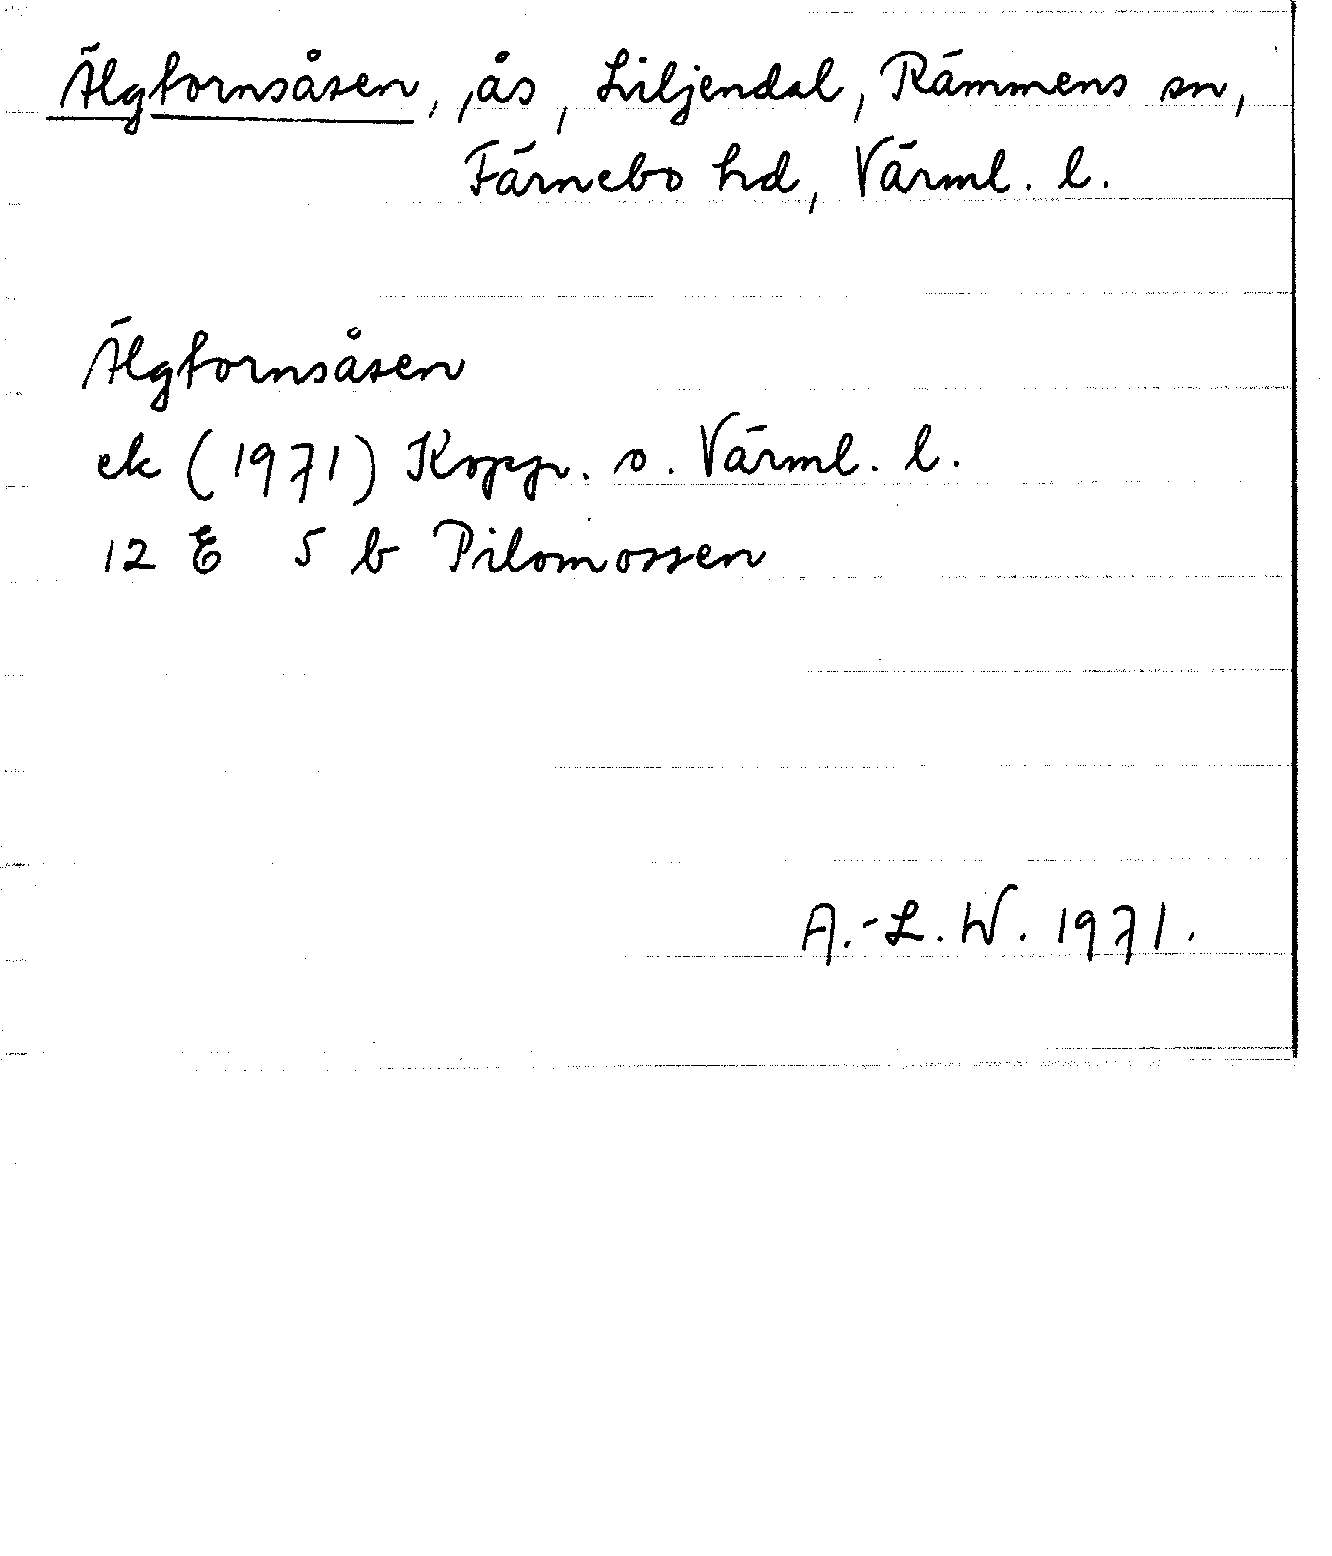 Älgtornsåsen, ås, Liljendal, Rämmens sn,
Färnebo hd, Värml. l.
Älgtornsåsen
ek (1971) Kopp. o. Värml. l.
12 E 5 b Pilomossen
A.-L. W. 1971.